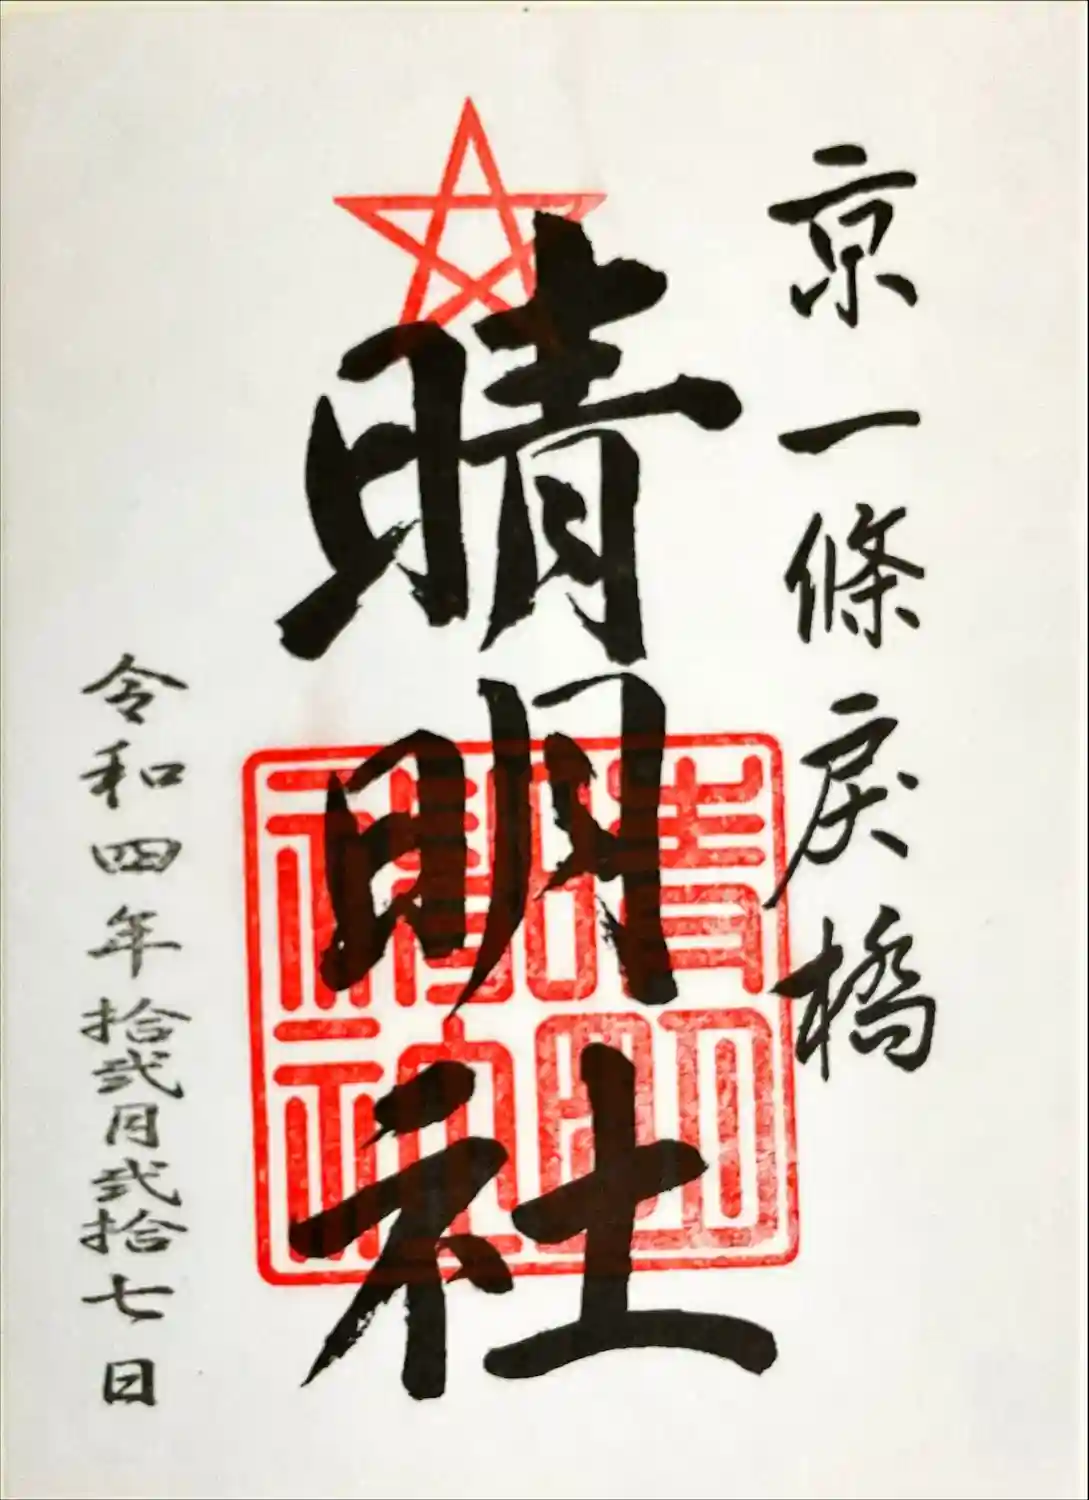 京一條戻橋
晴明社
晴明神社
令和四年拾弐月弐拾七日